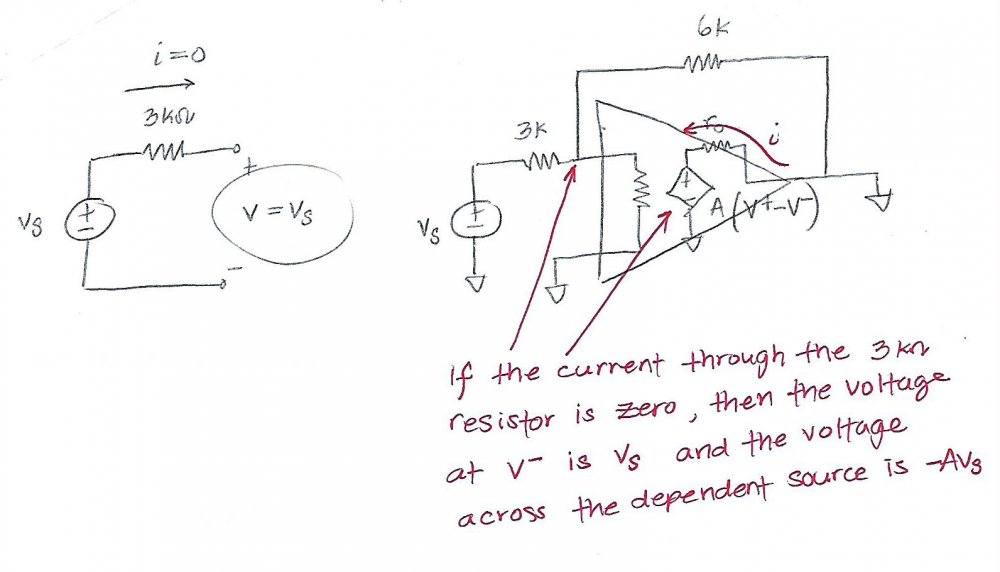 i=0
3kΩ
+
V = Vs
-
Vs
+
-
6K
3K
ro
i
Vs
+
-
+
-
A (V+-V-)
If the current through the 3kΩ
resistor is zero, then the voltage
at V- is Vs and the voltage
across the dependent source is -AVs